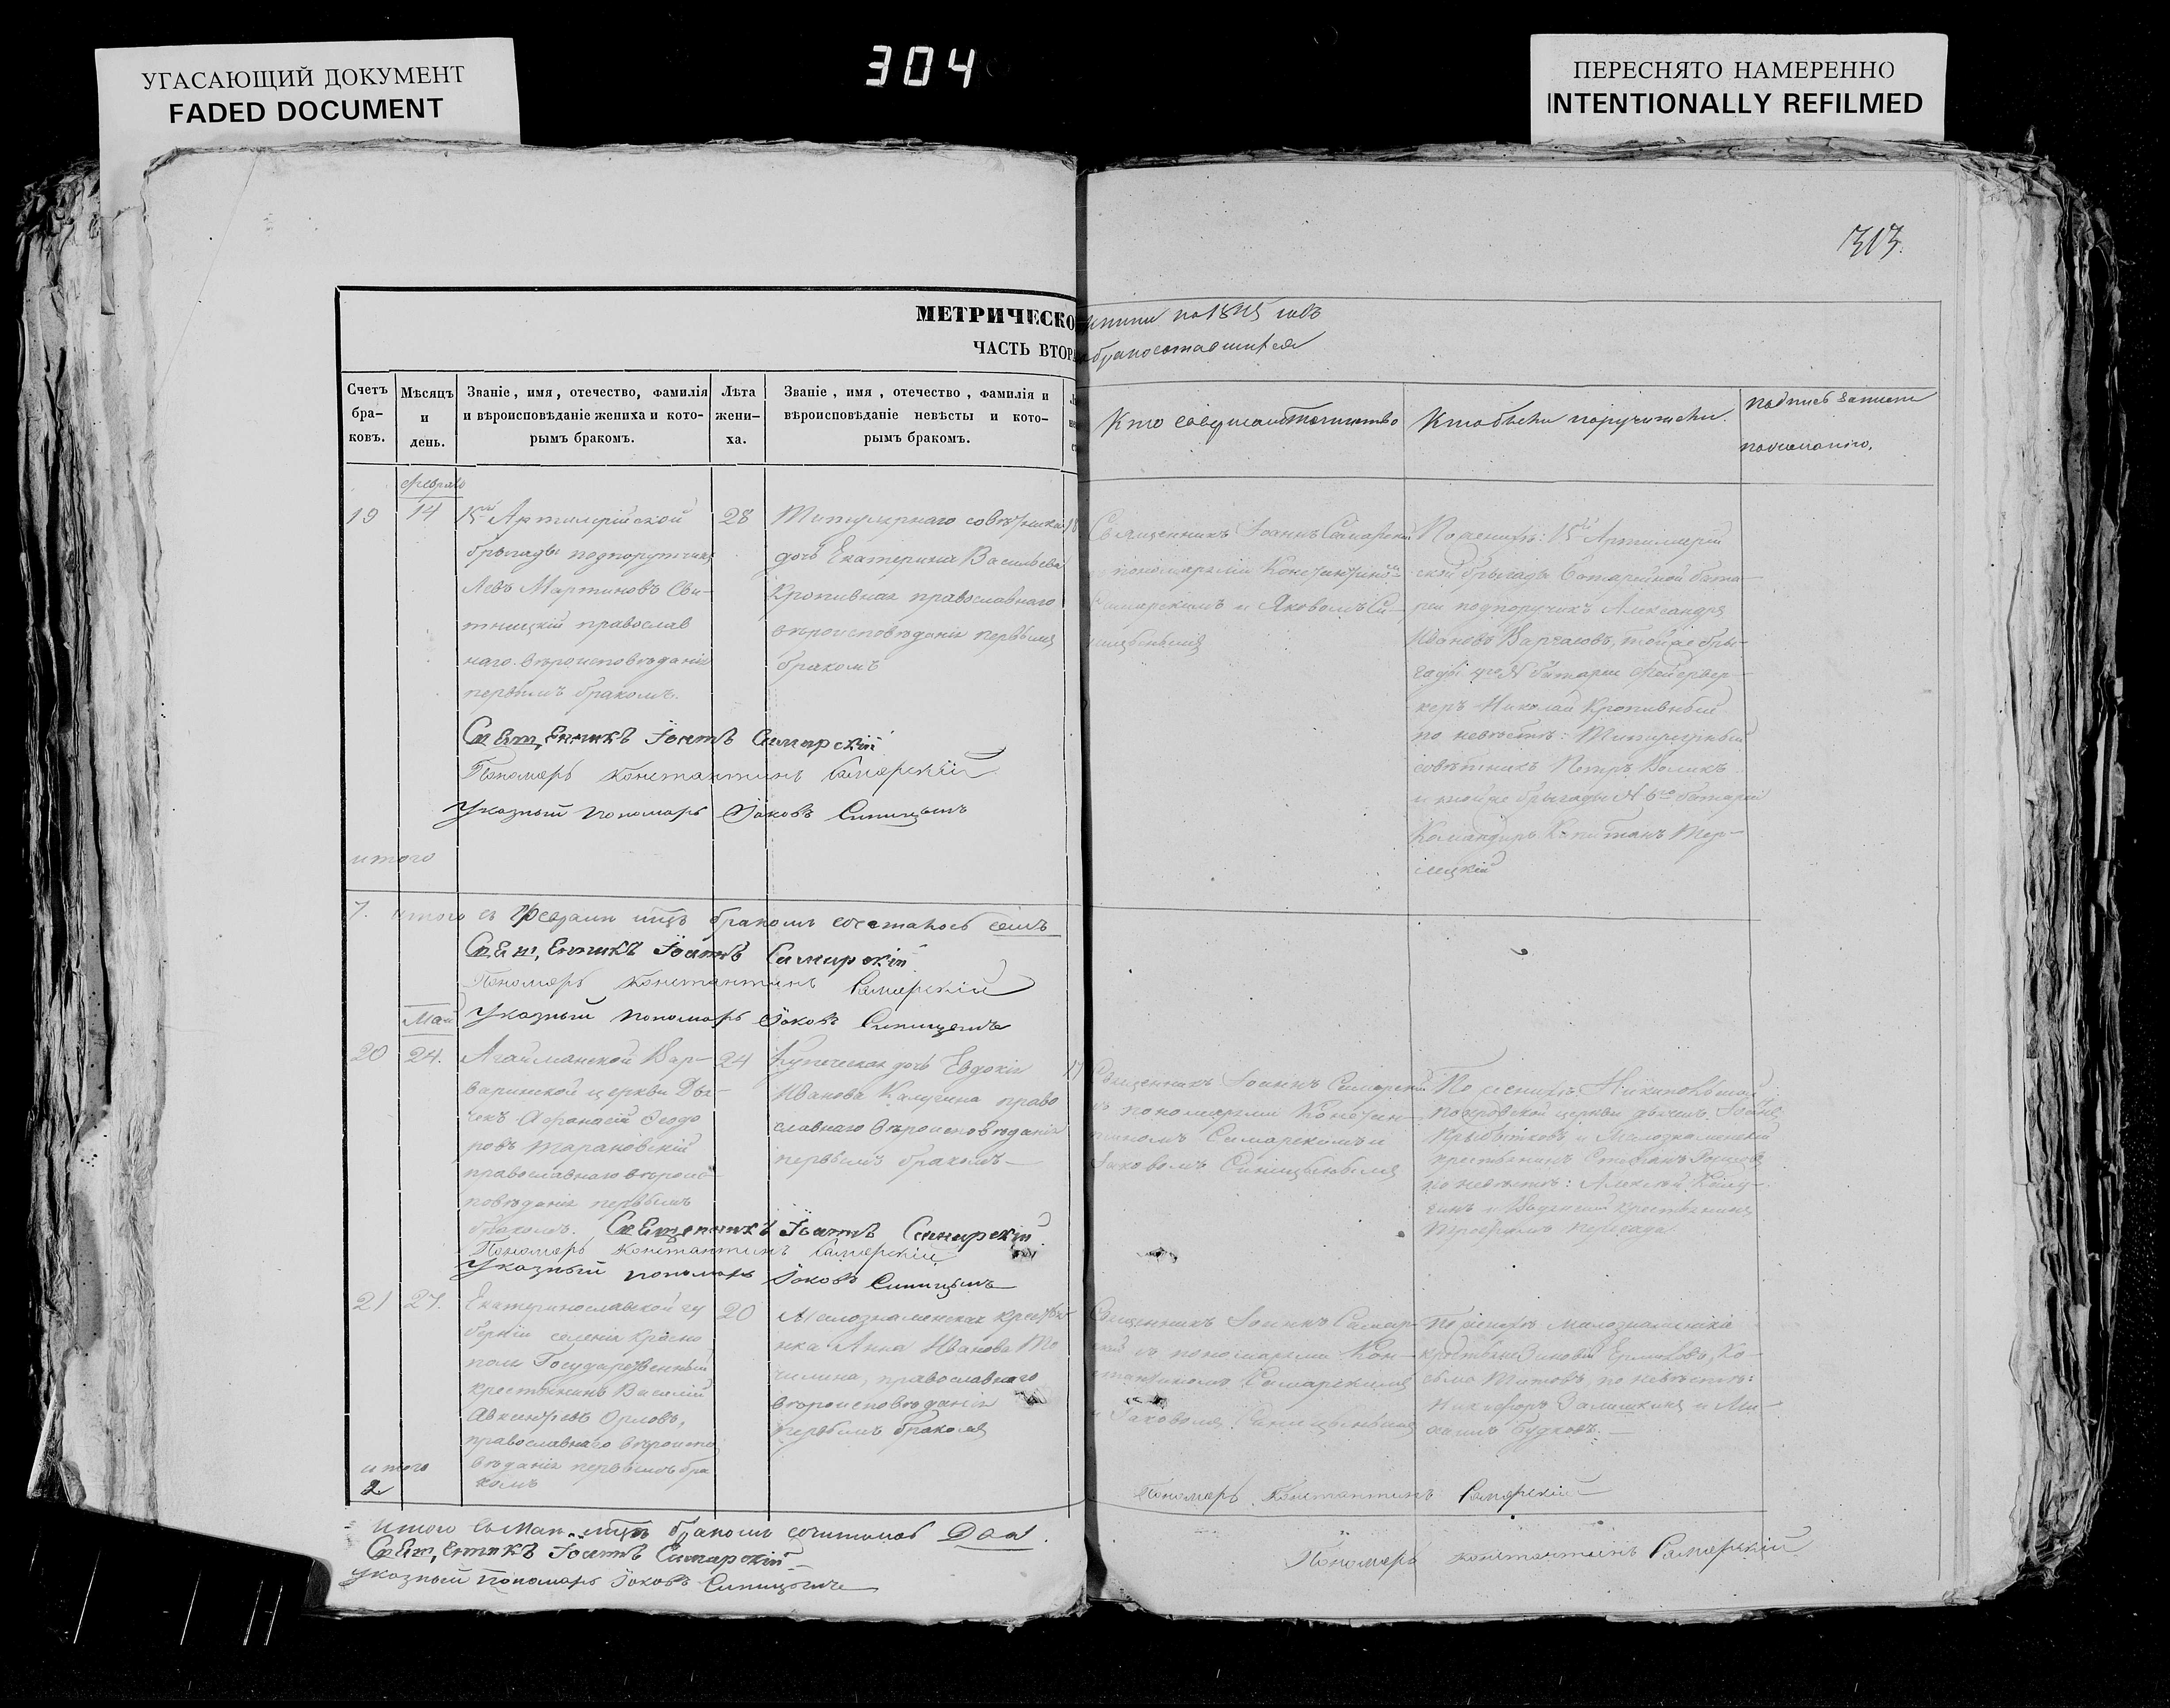 УГАСАЮЩИЙ ДОКУМЕНТ
FADED DOCUMENT
304
ПЕРЕСНЯТО НАМЕРЕННО
INTENTIONALLY REFILMED
313.
МЕТРИЧЕСКО
ЧАСТЬ ВТОРА
Счетъ бра-ковъ.
Мѣсяцъ и день.
Званіе, имя, отечество, фамилія
и вѣроисповѣданіе жениха и кото-
рымъ бракомъ.
Лѣта жени-ха.
Званіе, имя, отечество, фамилія и
вѣроисповѣданіе невѣсты и кото-
рымъ бракомъ.
Кто совершалъ таинство
Кто были поручители.
19
14
15й Артилерійской
бригады подпоручикъ
Левъ Мартиновъ Сви-
тницкій православ
наго вѣроисповѣданія
первымъ бракомъ.
28
Титулярнаго совѣтника
дочь Екатерина Васильева
Кропивная православнаго
вѣроисповѣданія первымъ
бракомъ
18
Священникъ Іоаннъ Самарскій
пономарями Константино
Самарскимъ и Яковомъ Си-
ницынымъ
По женихѣ: 15й Артиллерій
ской бригады батарейной бата-
реи подпоручикъ Александръ
Ивановъ, той же бри-
гады батареи Фейервер-
керъ Николай Кропивный
по невѣстѣ: Титулярный
совѣтникъ Петръ
и той же бригады № 6го батареи
Командиръ Капитанъ Тер-
лецкій
Священникъ Іоаннъ Самарскій
Пономарь Константинъ Самарскій
Указный пономарь Іаковъ Синицынъ
итого
7. итого въ Феврали мцѣ бракомъ сочеталось семь
Священникъ Іоаннъ Самарскій
Пономарь Константинъ Самарскій
Указный пономарь Іаковъ Синицынъ
Май
20
24.
Агайманской Вар-
варинской церкви Дья-
чекъ Афанасій Ѳеодо
ровъ Тарановскій
православнаго вѣроис-
повѣданія первымъ
бракомъ.
24
Купеческая дочь Евдокія
Иванова Калугина право
славнаго вѣроисповѣданія
первымъ бракомъ
17
Священникъ Іоаннъ Самарскій
съ пономарями Констан-
тиномъ Самарскимъ и
Іаковомъ Синицынымъ
По женихѣ:
Покровской церкви дьячекъ
и Малознаменскій
крестьянинъ Стефанъ
по невѣстѣ: Алексѣй Калу-
гинъ и крестьянинъ
Священникъ Іоаннъ Самарскій
Пономарь Константинъ Самарскій
Указный пономарь Іаковъ Синицынъ
21
27.
Екатеринославской гу
берніи селенія Красно
поля Государственный
крестьянинъ Василій
Авксентіевъ Орловъ,
православнаго вѣроиспо
вѣданія первымъ бра
комъ
20
Малознаменская крестьян
ка Анна Иванова
православнаго
вѣроисповѣданія
первымъ бракомъ
Священникъ Іоаннъ Самар-
скій съ пономарями Кон-
стантиномъ Самарскимъ
и Іаковомъ Синицынымъ
По женихѣ Малознаменскіе
крестьяне Зиновій Ермаковъ, Ко-
сьма Титовъ, по невѣстѣ:
Никифоръ и Ми-
хаилъ Будковъ.
итого
2
Пономарь Константинъ Самарскій
Итого въ Маи мцѣ бракомъ сочеталось Два.
Священникъ Іоаннъ Самарскій
Указный пономарь Іаковъ Синицынъ
Пономарь Константинъ Самарскій